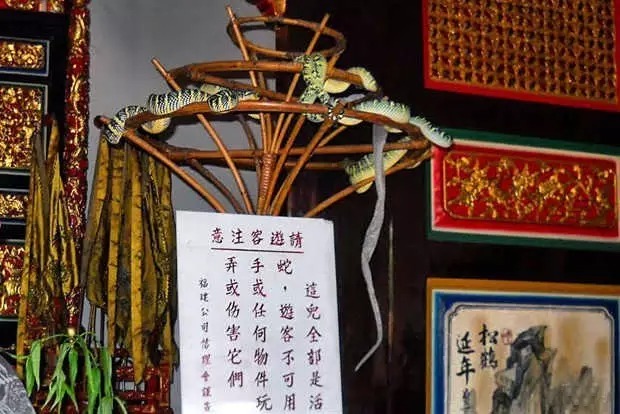 請遊客注意
這兒全部是活
蛇，遊客不可用
手或任何物件玩
弄或伤害它們
福建公司信理會謹告
松鶴
延年